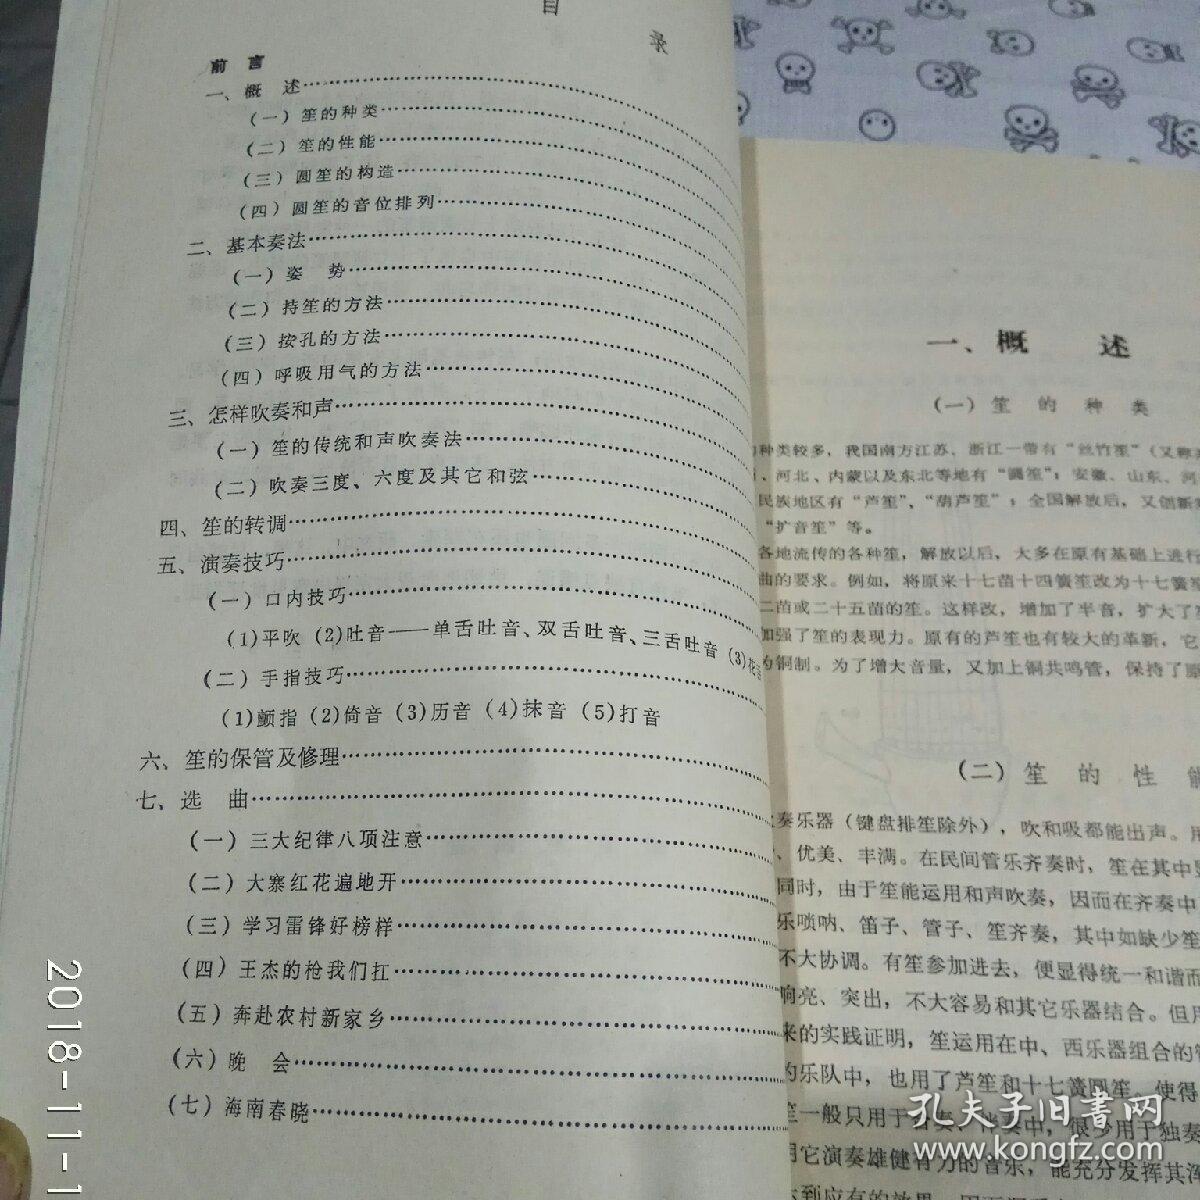 目 录
前 言
一、概 述
(一)笙的种类
(二)笙的性能
(三)圆笙的构造
(四)圆笙的音位排列
二、基本奏法
(一)姿 势
(二)持笙的方法
(三)按孔的方法
(四)呼吸用气的方法
三、怎样吹奏和声
(一)笙的传统和声吹奏法
(二)吹奏三度、六度及其它和弦
四、笙的转调
五、演奏技巧
(一)口内技巧
(1)平吹 (2)吐音——单舌吐音、双舌吐音、三舌吐音 (3)花舌
(二)手指技巧
(1)颤指 (2)倚音 (3)历音 (4)抹音 (5)打音
六、笙的保管及修理
七、选 曲
(一)三大纪律八项注意
(二)大寨红花遍地开
(三)学习雷锋好榜样
(四)王杰的枪我们扛
(五)奔赴农村新家乡
(六)晚 会
(七)海南春晓
一、概 述
(一)笙 的 种 类
种类较多，我国南方江苏、浙江一带有“丝竹笙”(又称
、河北、内蒙以及东北等地有“圆笙”；安徽、山东、河
民族地区有“芦笙”，“葫芦笙”；全国解放后，又创新
“扩音笙”等。
各地流传的各种笙，解放以后，大多在原有基础上进行
曲的要求。例如，将原来十七苗十四簧笙改为十七簧笙
二苗或二十五苗的笙。这样改，增加了半音，扩大了
加强了笙的表现力。原有的芦笙也有较大的革新，它
为铜制。为了增大音量，又加上铜共鸣管，保持了原
(二)笙 的 性 能
奏乐器(键盘排笙除外)，吹和吸都能出声。用
、优美、丰满。在民间管乐齐奏时，笙在其中
同时，由于笙能运用和声吹奏，因而在齐奏中
乐唢呐、笛子、管子、笙齐奏，其中如缺少笙
不大协调。有笙参加进去，便显得统一和谐而
响亮、突出，不大容易和其它乐器结合。但
来的实践证明，笙运用在中、西乐器组合的管
的乐队中，也用了芦笙和十七簧圆笙，使得
笙一般只用于合奏、伴奏中，很少用于独奏
用它演奏雄健有力的音乐，能充分发挥其浑
达到应有的效果
2018-11-1
孔夫子旧书网
www.kongfz.com